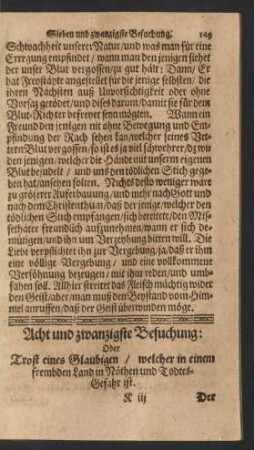 Sieben und zwanzigste Besuchung. 149
Schwachheit unserer Natur/und was man für eine
Erregung empfindet / wann man den jenigen siehet
der unser Blut vergossen/zu gut hält: Dann/ Er
hat Freystädte angestellet für die jenige selbsten/ die
ihren Nächsten auß Unvorsichtigkeit oder ohne
Vorsatz getödet/und dises darum/damit sie für dem
Blut-Richter befreyet seyn mögten. Wann ein
Freund den jenigen nit ohne Bewegung und Em-
pfindung der Rach sehen kan/welcher seines Vet-
tern Blut vergossen/so ist es ja viel schwehrer/dz wir
den jenigen/welcher die Hände mit unserm eigenen
Blut besudelt / und uns den tödlichen Stich gege-
ben hat/ansehen sollen. Nichts desto weniger ware
zu grösserer Auferbauung/und mehr nach Gott und
nach dem Christenthum/daß der jenige/welcher den
tödlichen Stich empfangen/sich bereitete/den Mis-
sethäter freundlich aufzunehmen/wann er sich de-
mütigen/und ihn um Verzeyhung bitten will. Die
Liebe verpflichtet ihn zur Vergebung/ja/daß er ihm
eine völlige Vergebung / und eine vollkommene
Versöhnung bezeugen/mit ihm reden/und umb-
fahen soll. Allhier streitet das Fleisch mächtig wider
den Geist/aber/man muß den Beystand vom Him-
mel anruffen/daß der Geist überwinden möge.
Acht und zwanzigste Besuchung:
Oder
Trost eines Glaubigen / welcher in einem
frembden Land in Nöthen und Todtes-
Gefahr ist.
K iij Der